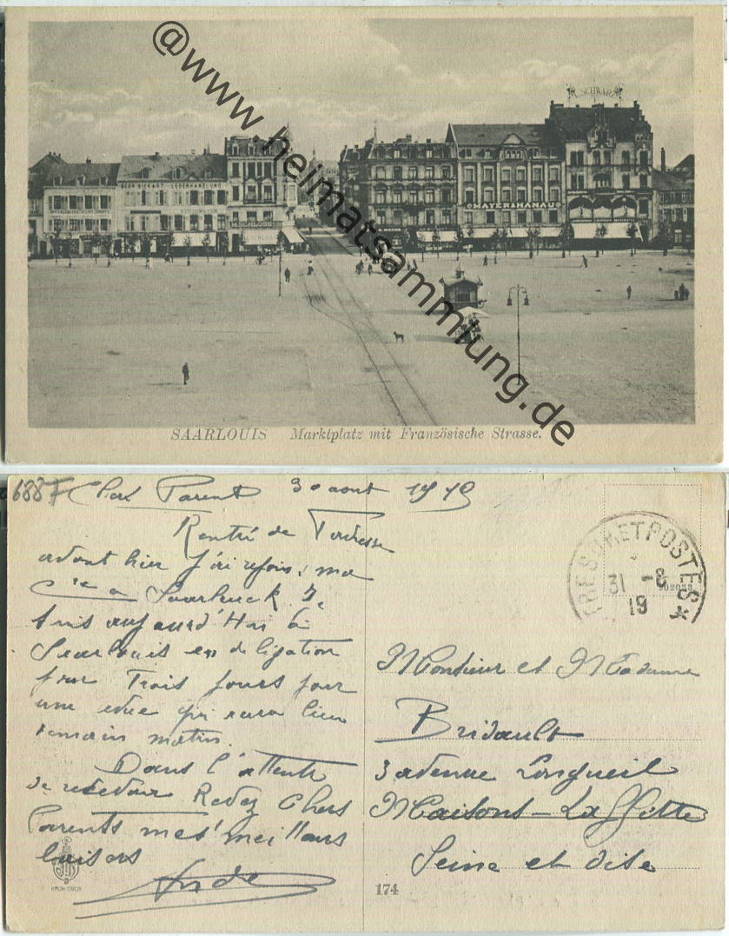 @www.heimatsammlung.de
SCHWARZ
MAYER & HANAU
SAARLOUIS Marktplatz mit Französische Strasse.
688F Chers Parent 30 aout 1919
Rentré de Toulouse
avant hier j'ai rejoins ma
Cie a Saarbruck Je
suis aujourd'Hui à
Searlouis en deligation
pour Trois jours pour
une revue qui aura lieu
demain matin.
Dans l'attente
de recevoir Recevez Chers
Parents mes meilleurs
baisers
TRESOR ET POSTES *
31 - 8
19
Monsieur et Madame
Bridault
3 avenue Longueil
Maisons-Laffitte
Seine et Oise
174